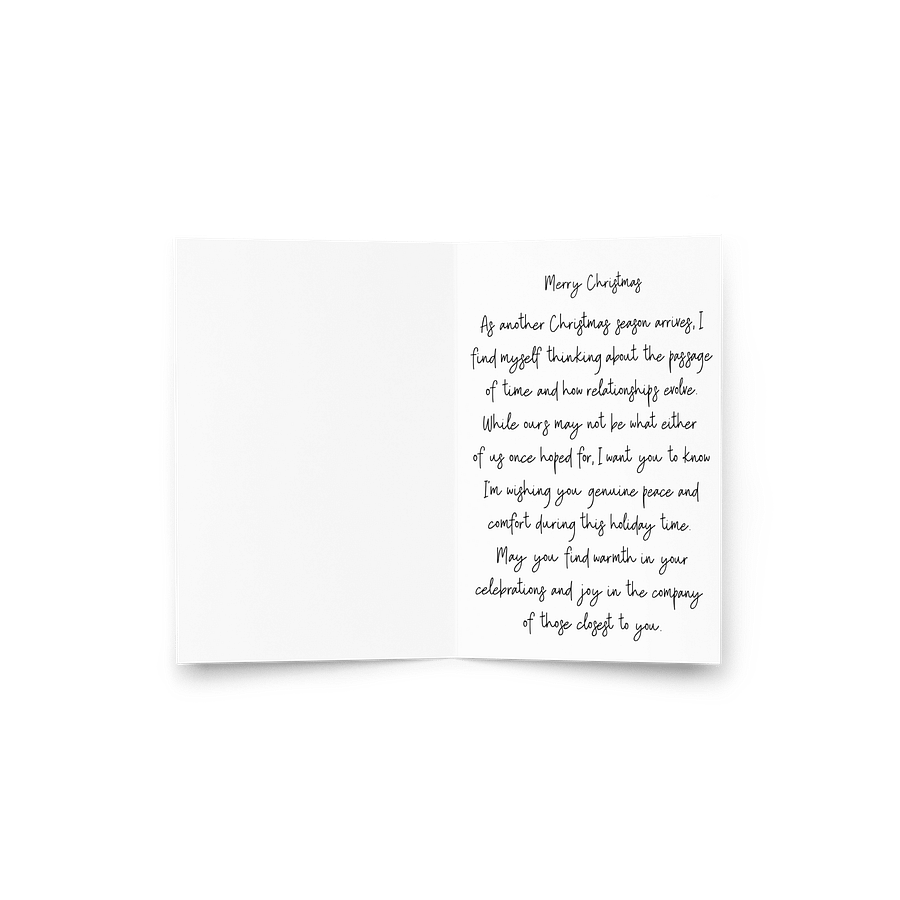 Merry Christmas
As another Christmas season arrives, I
find myself thinking about the passage
of time and how relationships evolve.
While ours may not be what either
of us once hoped for, I want you to know
I'm wishing you genuine peace and
comfort during this holiday time.
May you find warmth in your
celebrations and joy in the company
of those closest to you.